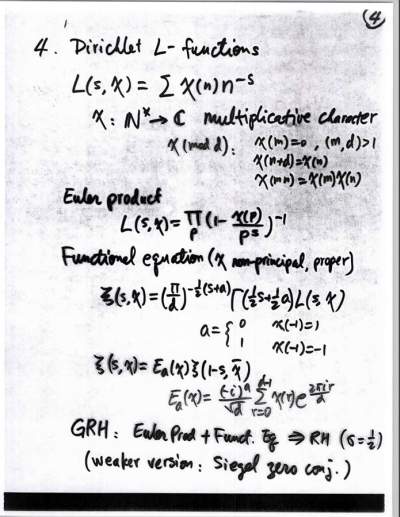 4
4. Dirichlet L-functions
L(s,χ) = Σ χ(n)n^{-s}
χ: N^x → C multiplicative character
χ (mod d): χ(m)=0, (m,d)>1
χ(n+d)=χ(n)
χ(mn)=χ(m)χ(n)
Euler product
L(s,χ) = Π_p (1 - χ(p)/p^s)^{-1}
Functional equation (χ non-principal, proper)
ξ(s,χ) = (π/d)^{-½(s+a)} Γ(½s+½a) L(s,χ)
a = { 0 χ(-1)=1
1 χ(-1)=-1
ξ(s,χ) = E_a(χ) ξ(1-s, χ̄)
E_a(χ) = (-i)^a/√d Σ_{r=0}^{d-1} χ(r) e^{2πir/d}
GRH: Euler Prod + Funct. Eq ⇒ RH (σ=½)
(weaker version: Siegel zero conj.)